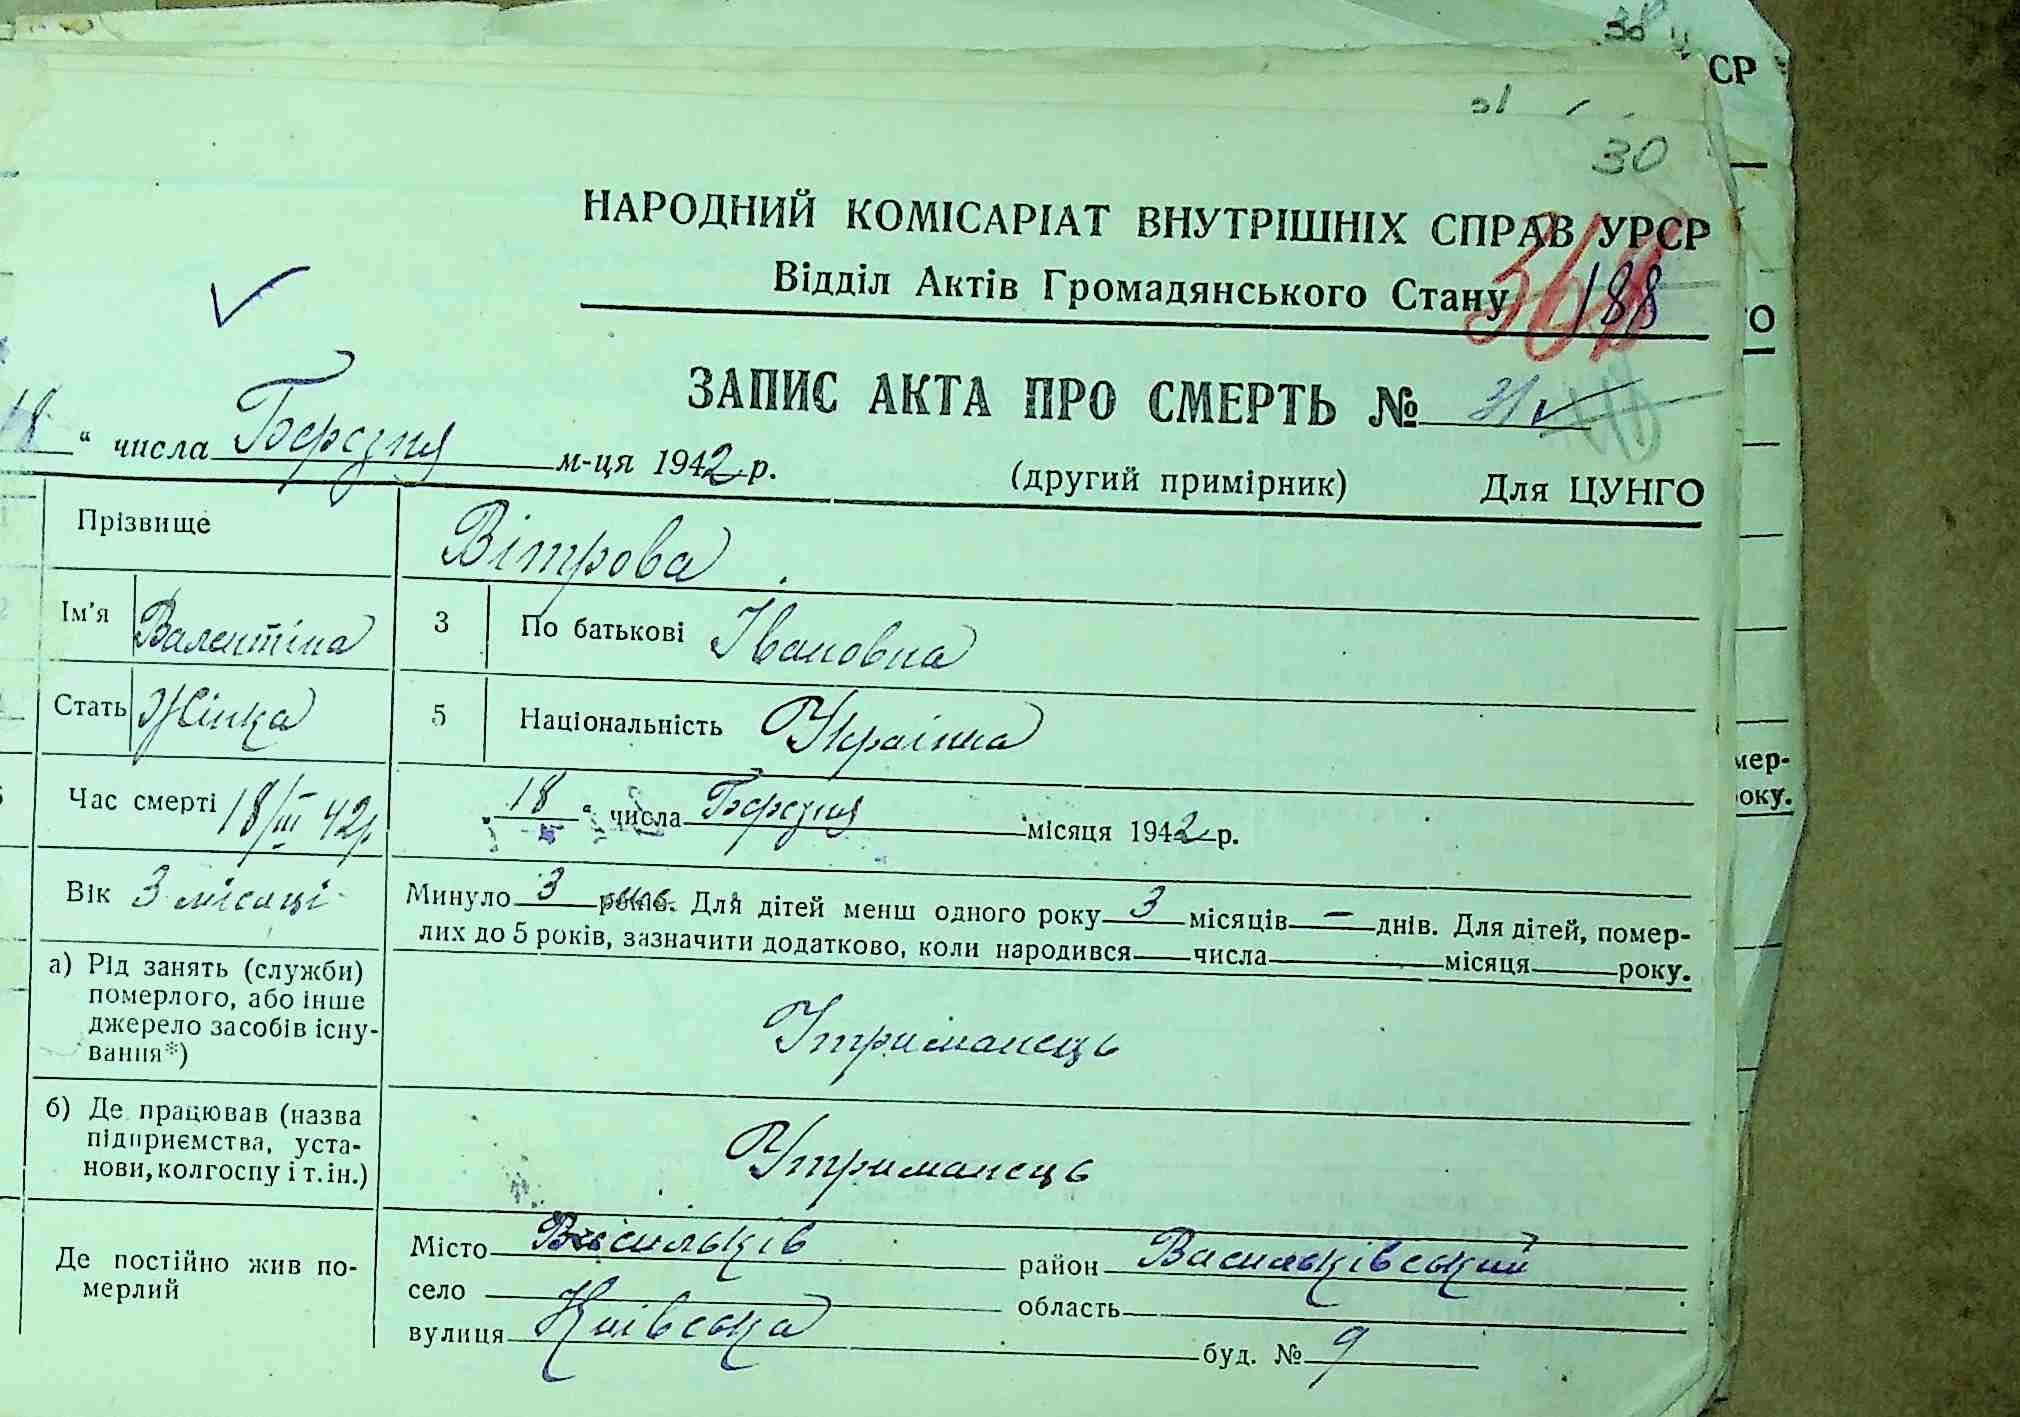 38
СР
31
30
НАРОДНИЙ КОМІСАРІАТ ВНУТРІШНІХ СПРАВ УРСР
Відділ Актів Громадянського Стану 188
О
ЗАПИС АКТА ПРО СМЕРТЬ № 31
18 “ числа Березня м-ця 1942 р. (другий примірник) Для ЦУНГО
Прізвище Вітрова
Ім'я Валентіна 3 По батькові Івановна
Стать Жінка 5 Національність Украінка
Час смерті 18/III 42р „18“ числа Березня місяця 1942 р.
мер-
оку.
Вік 3 місяці Минуло 3 Для дітей менш одного року 3 місяців — днів. Для дітей, помер-
лих до 5 років, зазначити додатково, коли народився числа місяця року.
а) Рід занять (служби)
померлого, або інше
джерело засобів існу-
вання*)
Утриманець
б) Де працював (назва
підприємства, уста-
нови, колгоспу і т. ін.)
Утриманець
Де постійно жив по-
мерлий
Місто Васильків район Васильківський
село область
вулиця Київська буд. № 9